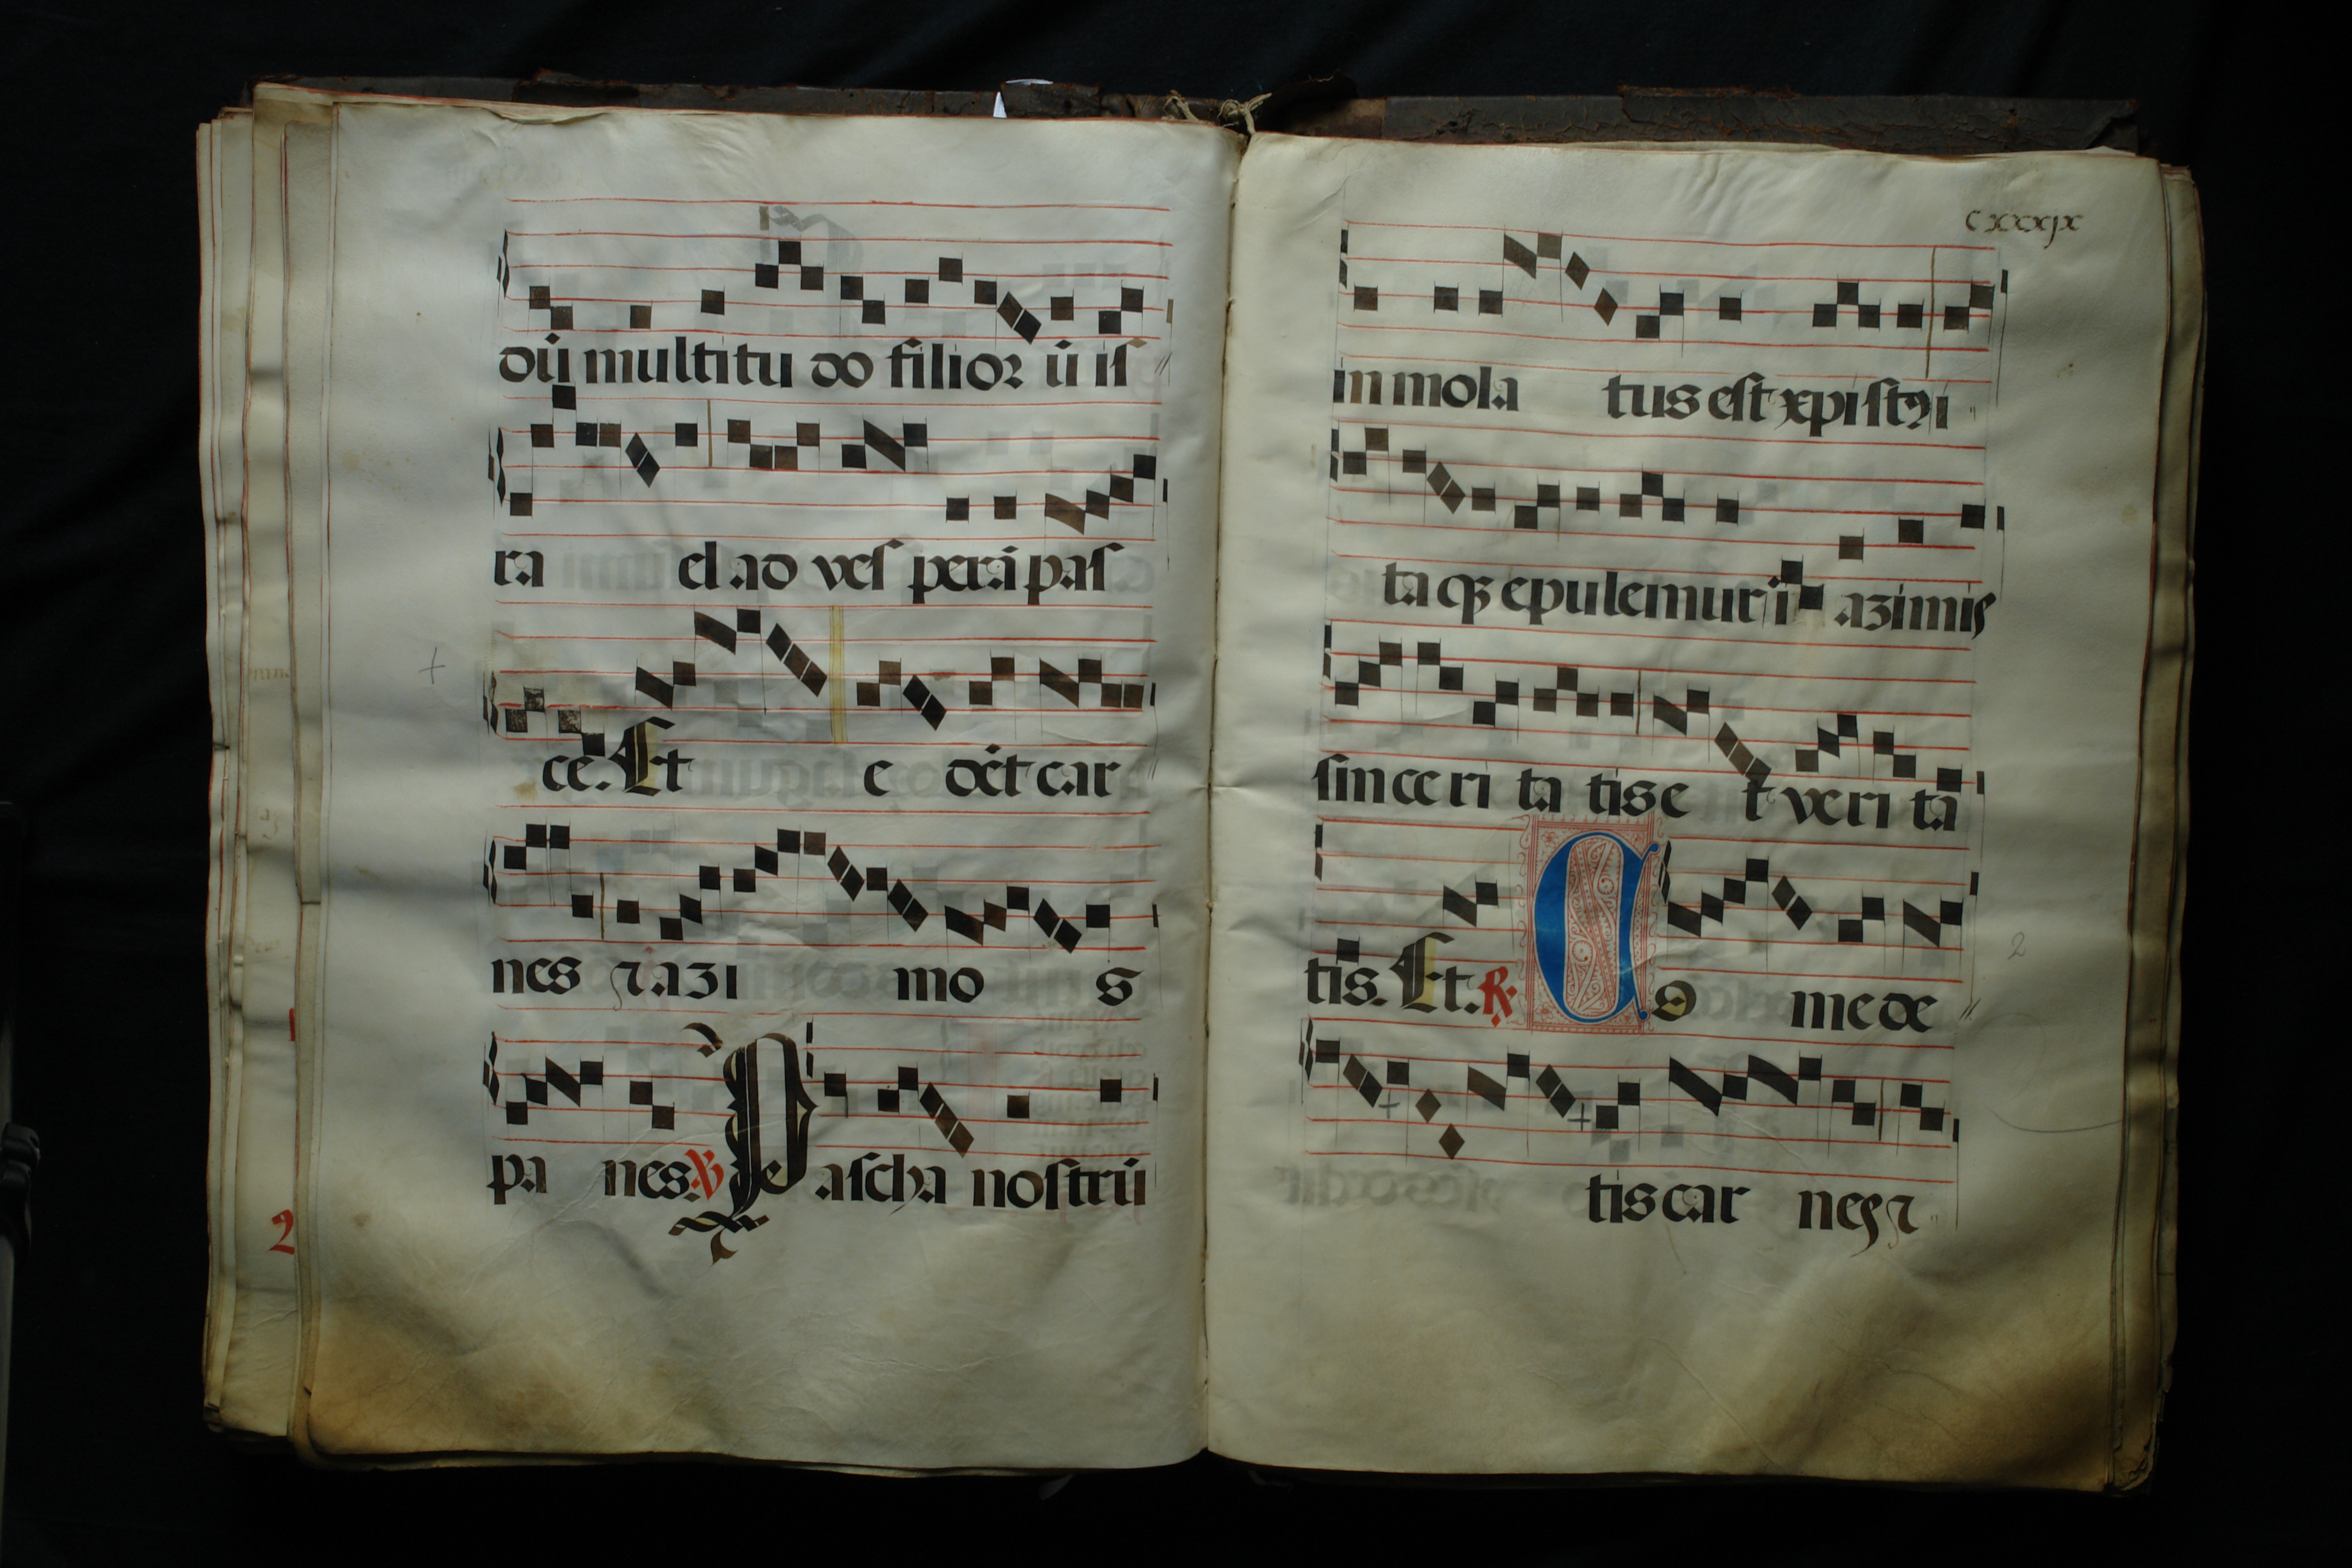 dū multitu do filioꝝ ū is
ra el ad ves perā pas
ce. Et e dēt car
nes ⁊ azi mo s
pa nes. ℣ P ascha nostrū
cxxxix
im mola tus est xpistꝰ i
ta qꝫ epulemur ī azimis
sinceri ta tis e t veri ta
tis. Et. ℟. C o mede
2
tis car nes ⁊
2